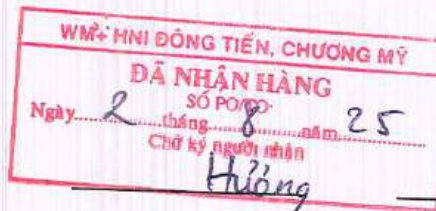 WM+ HNI ĐÔNG TIẾN, CHƯƠNG MỸ
ĐÃ NHẬN HÀNG
SỐ PO/DO:
Ngày 2 tháng 8 năm 25
Chữ ký người nhận
Hường